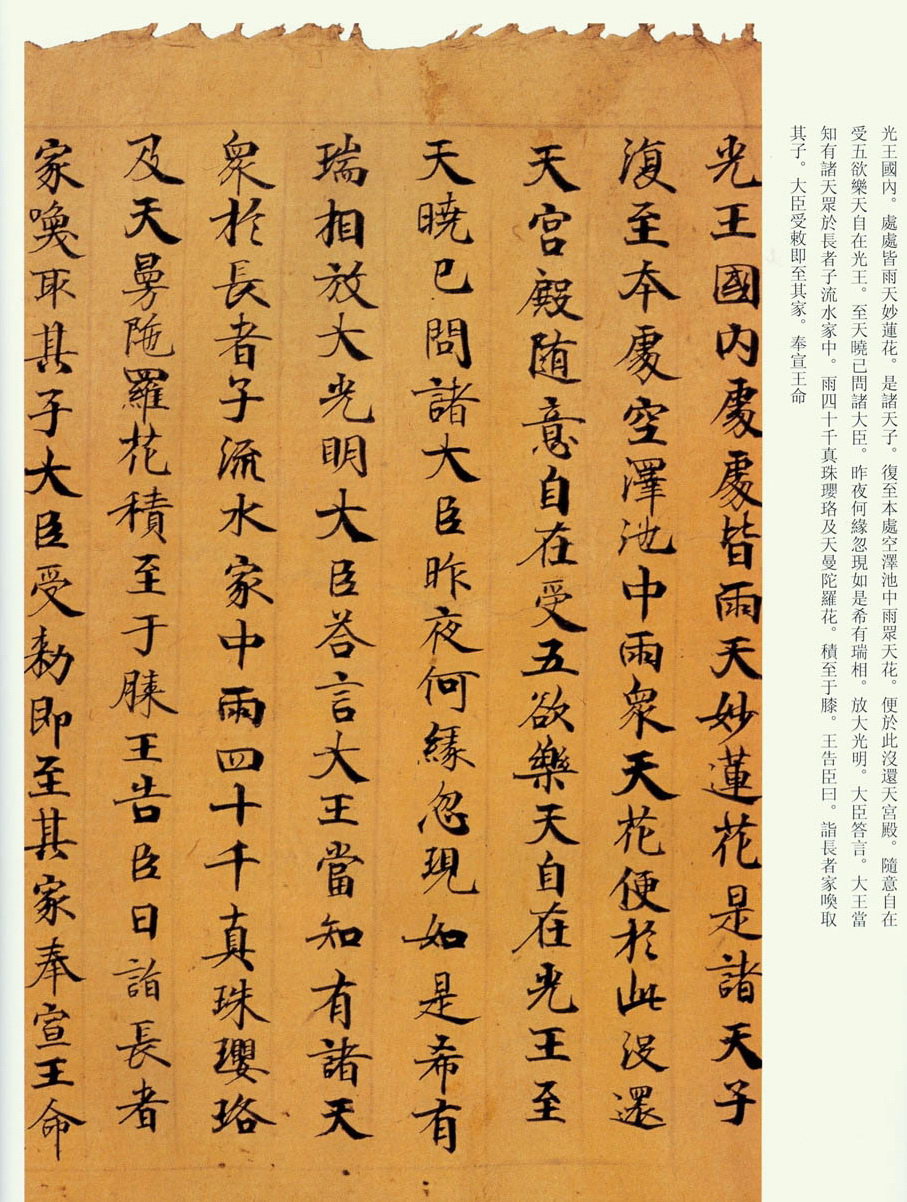 光王國內。處處皆雨天妙蓮花。是諸天子。復至本處空澤池中雨眾天花。便於此沒還天宮殿。隨意自在
受五欲樂天自在光王。至天曉已問諸大臣。昨夜何緣忽現如是希有瑞相。放大光明。大臣答言。大王當
知有諸天眾於長者子流水家中。雨四十千真珠瓔珞及天曼陀羅花。積至于膝。王告臣曰。詣長者家喚取
其子。大臣受敕即至其家。奉宣王命
光王國內處處皆雨天妙蓮花是諸天子
復至本處空澤池中雨眾天花便於此沒還
天宮殿随意自在受五欲樂天自在光王至
天曉已問諸大臣昨夜何緣忽現如是希有
瑞相放大光明大臣荅言大王當知有諸天
眾於長者子流水家中雨四十千真珠瓔珞
及天曼陁羅花積至于膝王告臣曰詣長者
家喚取其子大臣受勑即至其家奉宣王命